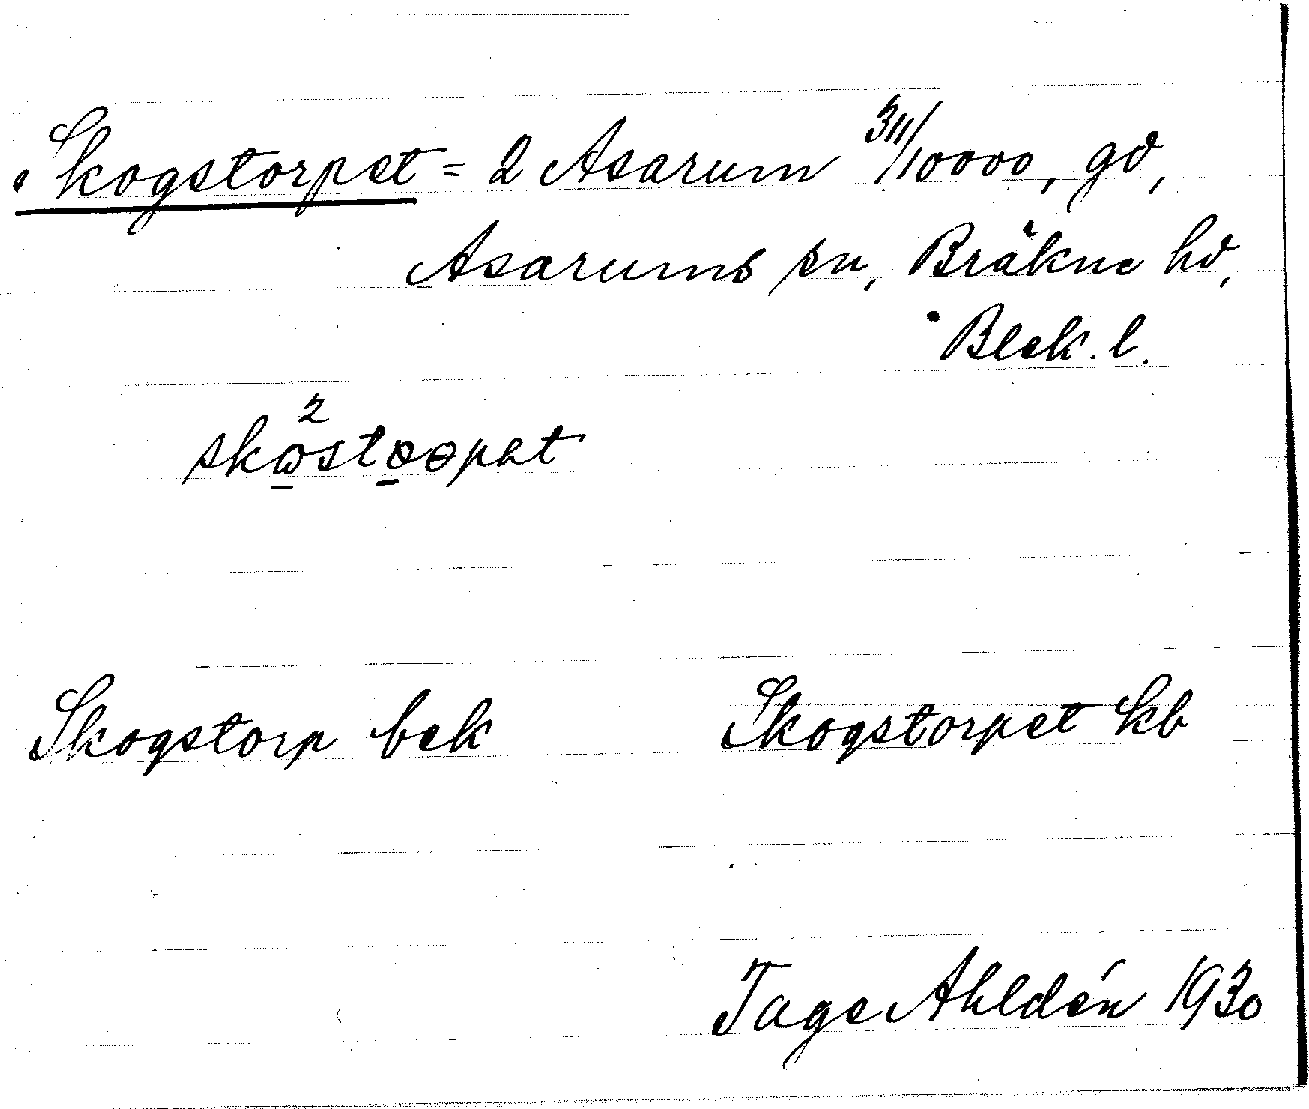 Skogstorpet = 2 Asarum 311/10000, gd,
Asarums sn, Bräkne hd,
Blek. l.
Skogstorp bek Skogstorpet kb
Tage Ahldén 1930